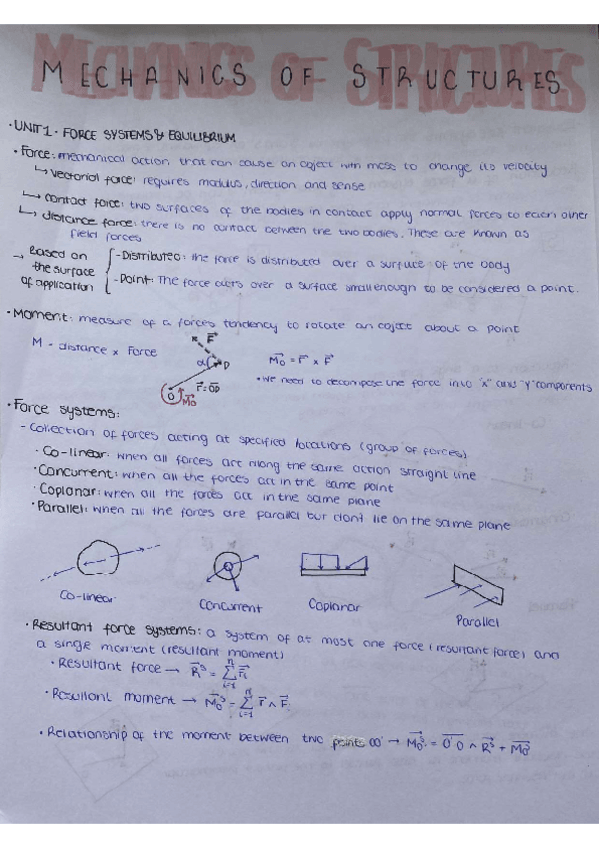 MECHANICS OF STRUCTURES
• UNIT 1 • FORCE SYSTEMS & EQUILIBRIUM
• Force: mechanical action, that can cause an object with mass to change its velocity
↳ vectorial force: requires modulus, direction and sense
↳ contact force: two surfaces of the bodies in contact apply normal forces to each other
↳ distance force: there is no contact between the two bodies. These are known as
field forces
→ Based on the surface of application
- Distributed: the force is distributed over a surface of the body
- Point: The force acts over a surface small enough to be considered a point.
• Moment: measure of a forces tendency to rotate an object about a point
M = distance × Force
F⃗
α
D
O
r⃗ = OD
M⃗o
M⃗o = r⃗ × F⃗
• We need to decompose the force into "x" and "y" components
• Force systems:
- Collection of forces acting at specified locations (group of forces)
• Co-linear: when all forces act along the same action straight line
• Concurrent: when all the forces act in the same point
• Coplanar: when all the forces act in the same plane
• Parallel: when all the forces are parallel but dont lie on the same plane
Co-linear
Concurrent
Coplanar
Parallel
• Resultant force systems: a system of at most one force (resultant force) and
a single moment (resultant moment)
• Resultant force → R⃗ˢ = Σ F⃗ᵢ
• Resultant moment → M⃗oˢ = Σ r⃗ ∧ F⃗ᵢ
• Relationship of the moment between two points OO' → M⃗o'ˢ = O'O ∧ R⃗ˢ + M⃗oˢ